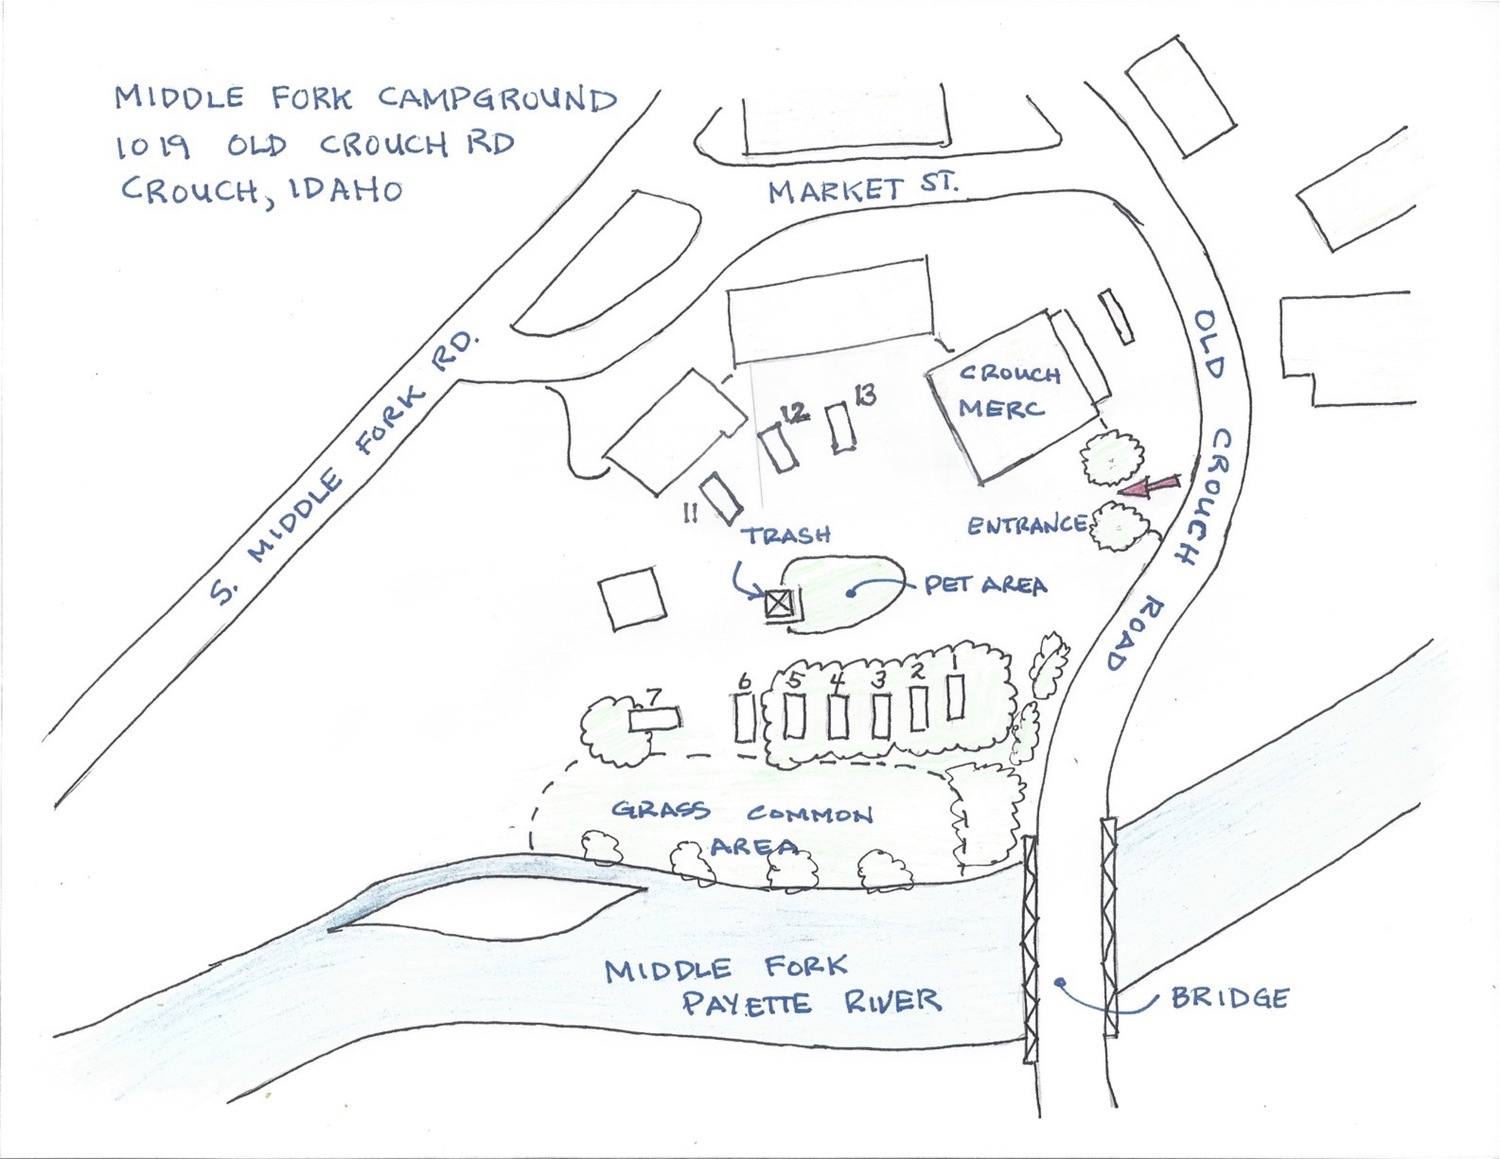 MIDDLE FORK CAMPGROUND
1019 OLD CROUCH RD
CROUCH, IDAHO
MARKET ST.
S. MIDDLE FORK RD.
OLD CROUCH ROAD
CROUCH
MERC
13
12
11
ENTRANCE
TRASH
PET AREA
7
6
5
4
3
2
1
GRASS COMMON
AREA
MIDDLE FORK
PAYETTE RIVER
BRIDGE